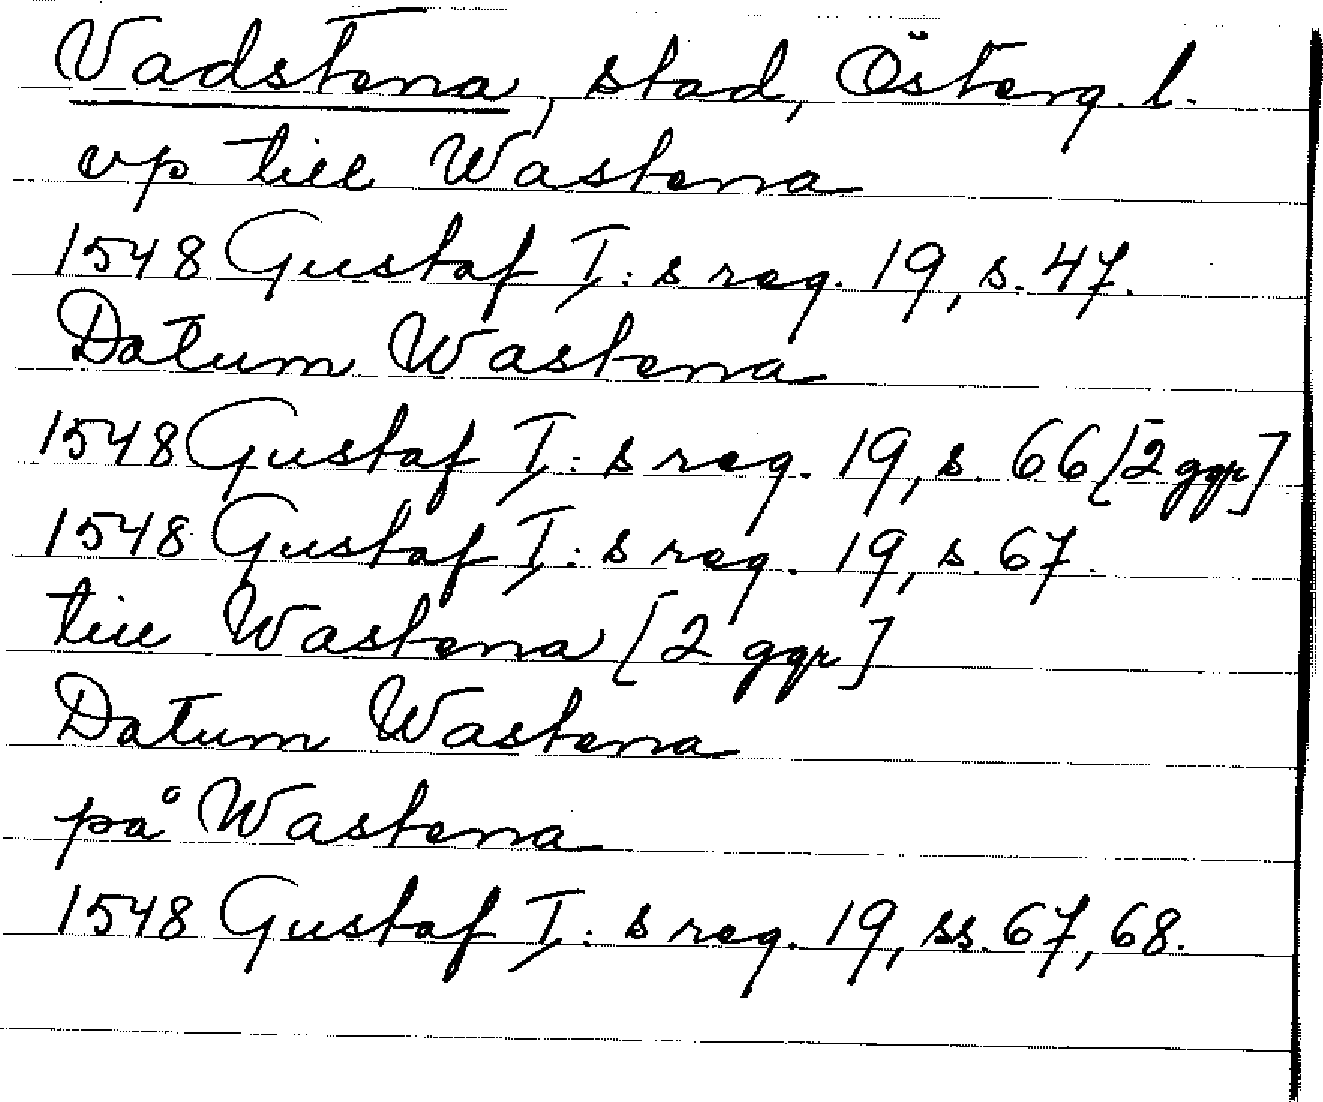 Vadstena, stad, Österg. l.
vp till Wastena
1548 Gustaf I:s reg. 19, s. 47.
Datum Wastena
1548 Gustaf I:s reg. 19, s. 66 [2 ggr]
1548 Gustaf I:s reg. 19, s. 67.
till Wastena [2 ggr]
Datum Wastena
på Wastena
1548 Gustaf I:s reg. 19, ss. 67, 68.